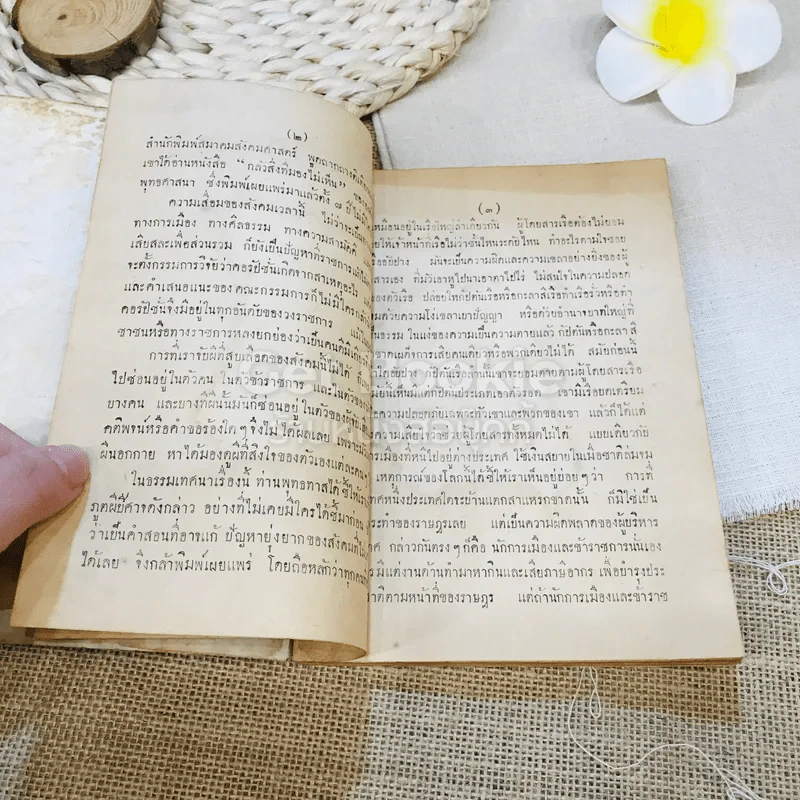 (๒)
สำนักพิมพ์สมาคมสังคมศาสตร์
เขาได้อ่านหนังสือ "กลัวสิ่งที่มองไม่เห็น"
พุทธศาสนา ซึ่งพิมพ์เผยแพร่มาแล้วตั้ง ๗ ปี
ความเสื่อมของสังคมเวลานี้ ไม่ว่าจะเป็น
ทางการเมือง ทางศีลธรรม ทางความสามัคคี
เสียสละเพื่อส่วนรวม ก็ยังเป็นปัญหาที่ราชการ
จะตั้งกรรมการวิจัยว่าคอรัปชั่นเกิดจากสาเหตุอะไร
และคำเสนอแนะของ คณะกรรมการก็ไม่มีใคร
คอรัปชั่นจึงมีอยู่ในทุกอันดับของวงราชการ
ชาชนหรือทางราชการหลงยกย่องว่าเป็นคนดีมี
การที่เราจับผีที่สูบเลือดของสังคมนี้ไม่ได้
ไปซ่อนอยู่ในตัวคน ในตัวข้าราชการ และในตัวของ
บางคน และบางทีผีนั้นมันก็ซ่อนอยู่ ในตัวของ
คติพจน์หรือคำขอร้องใด ๆ จึงไม่ได้ผลเลย
ผีนอกกาย หาได้มองดูผีที่สิงใจของตัวเองแต่ละคน
ในธรรมเทศนาเรื่องนี้ ท่านพุทธทาสได้ชี้ให้
ภูตผีปีศาจดังกล่าว อย่างที่ไม่เคยมีใครได้ชี้มาก่อน
ว่าเป็นคำสอนที่อาจแก้ ปัญหายุ่งยากของสังคม
ได้เลย จึงกล้าพิมพ์เผยแพร่ โดยถือหลักว่าทุกคน
(๓)
เหมือนอยู่ในเรือใหญ่ลำเดียวกัน ผู้โดยสารเรือต้องไม่ยอม
ให้เจ้าหน้าที่เรือไม่ว่าชั้นไหนระดับไหน ทำอะไรตามใจชอบ
มันจะเป็นความผิดและความเขลาอย่างยิ่งของผู้
ที่มัวเอาหูไปนาเอาตาไปไร่ ไม่สนใจในความปลอด
ของตัวเรือ ปล่อยให้กัปตันเรือหรือกะลาสีเรือทำเรือรั่วหรือทำ
ด้วยความโง่เขลาเบาปัญญา หรือด้วยอำนาจบาทใหญ่ที่
ธรรม ในแง่ของความเป็นความตายแล้ว กัปตันหรือกะลาสี
การเสียคนเดียวหรือพวกเดียวไม่ได้ สมัยก่อนนี้
กัปตันเรือเหล่านั้นเขาจะยอมตายตามผู้โดยสารเรือ
แต่กัปตันประเภทเอาตัวรอด เขามีเรือยตเตรียม
ความปลอดภัยเฉพาะตัวเขา และพวกของเขา แล้วก็ได้แต่
ความเสียใจ ระบุผู้โดยสารทั้งหมดไม่ได้ แบบเดียวกับ
เมืองที่หนีไปอยู่ต่างประเทศ ใช้เงินสบายในเมื่อชาติล่มจม
เหตุการณ์ของโลกก็ได้ชี้ให้เราเห็นอยู่บ่อย ๆ ว่า การที่
ประเทศหนึ่งประเทศใดจะบ้านแตกสาแหรกขาดนั้น ก็มิใช่เป็น
กระทำของราษฎรเลย แต่เป็นความผิดพลาดของผู้บริหาร
กล่าวกันตรง ๆ ก็คือ นักการเมืองและข้าราชการนั่นเอง
มีแต่งานด้านทำมาหากินและเสียภาษีอากร เพื่อบำรุงประ
ตามหน้าที่ของราษฎร แต่ถ้านักการเมืองและข้าราช